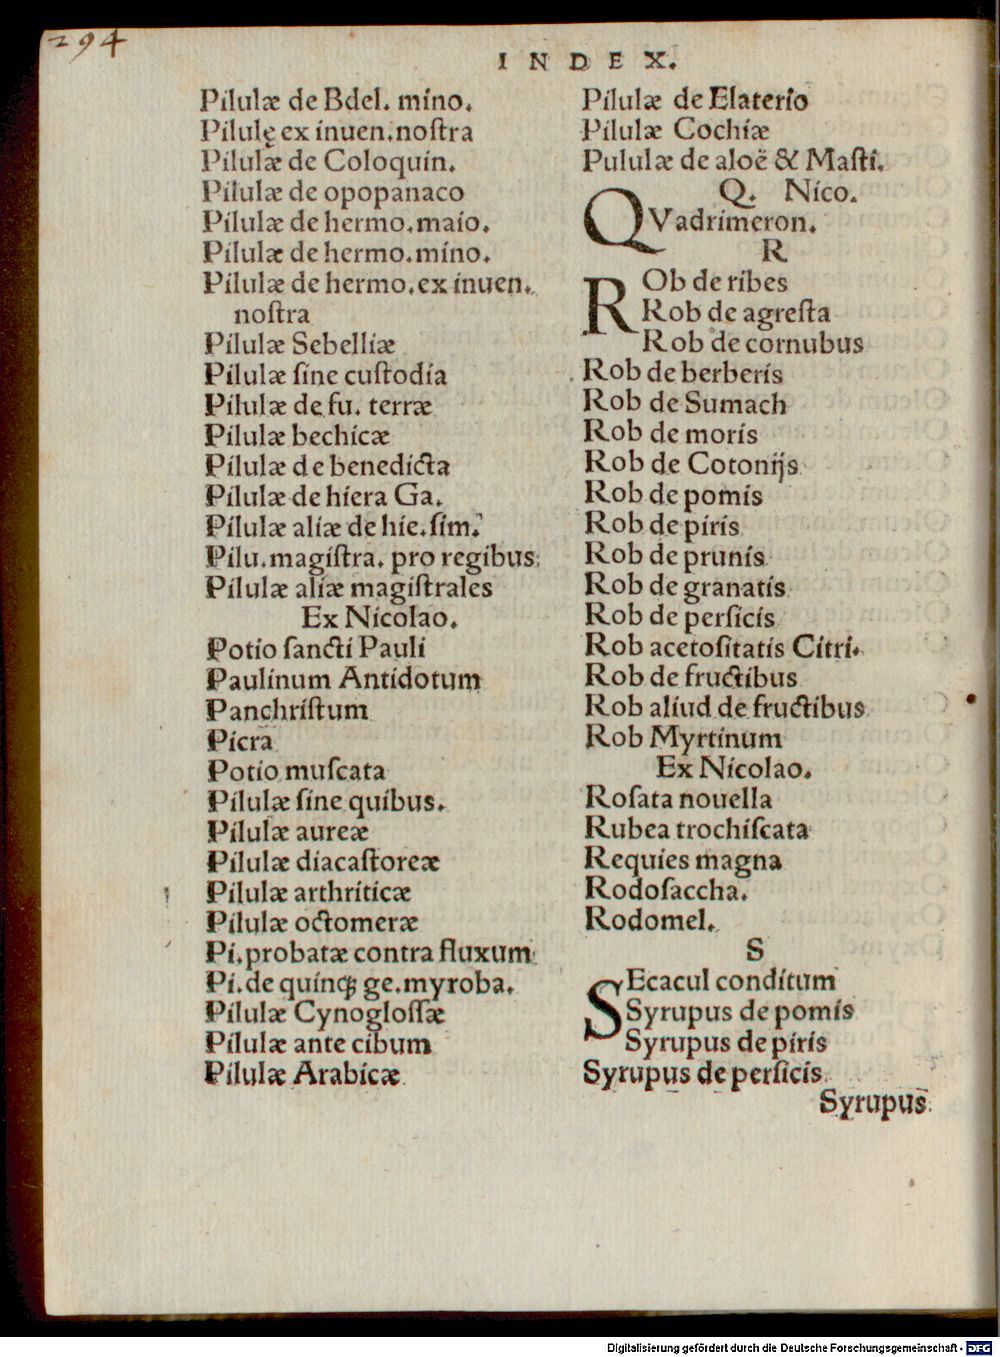 294
INDEX.
Pilulæ de Bdel. mino.
Pilulę ex inuen. noſtra
Pilulæ de Coloquin.
Pilulæ de opopanaco
Pilulæ de hermo. maio.
Pilulæ de hermo. mino.
Pilulæ de hermo. ex inuen.
noſtra
Pilulæ Sebelliæ
Pilulæ ſine cuſtodia
Pilulæ de fu. terræ
Pilulæ bechicæ
Pilulæ de benedicta
Pilulæ de hiera Ga.
Pilulæ aliæ de hie. ſim.
Pilu. magiſtra. pro regibus
Pilulæ aliæ magiſtrales
Ex Nicolao.
Potio ſancti Pauli
Paulinum Antidotum
Panchriſtum
Picra
Potio muſcata
Pilulæ ſine quibus.
Pilulæ aureæ
Pilulæ diacaſtoreæ
Pilulæ arthriticæ
Pilulæ octomeræ
Pi. probatæ contra fluxum
Pi. de quinqꝫ ge. myroba.
Pilulæ Cynogloſſæ
Pilulæ ante cibum
Pilulæ Arabicæ
Pilulæ de Elaterio
Pilulæ Cochiæ
Pululæ de aloë & Maſti.
Q. Nico.
QVadrimeron.
R
ROb de ribes
Rob de agreſta
Rob de cornubus
Rob de berberis
Rob de Sumach
Rob de moris
Rob de Cotonijs
Rob de pomis
Rob de piris
Rob de prunis
Rob de granatis
Rob de perſicis
Rob acetoſitatis Citri.
Rob de fructibus
Rob aliud de fructibus
Rob Myrtinum
Ex Nicolao.
Roſata nouella
Rubea trochiſcata
Requies magna
Rodoſaccha.
Rodomel.
S
SEcacul conditum
Syrupus de pomis
Syrupus de piris
Syrupus de perſicis
Syrupus
Digitalisierung gefördert durch die Deutsche Forschungsgemeinschaft - DFG